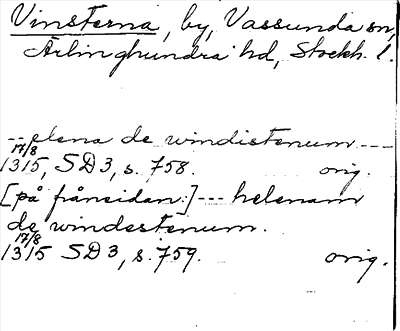 Vinsterna, by, Vassunda sn,
Ärlinghundra hd, Stockh. l.
-- elena de windistenum ---
17/8
1315, SD 3, s. 758. orig.
[på frånsidan:] --- helenam
de windestenum.
17/8
1315 SD 3, s. 759. orig.